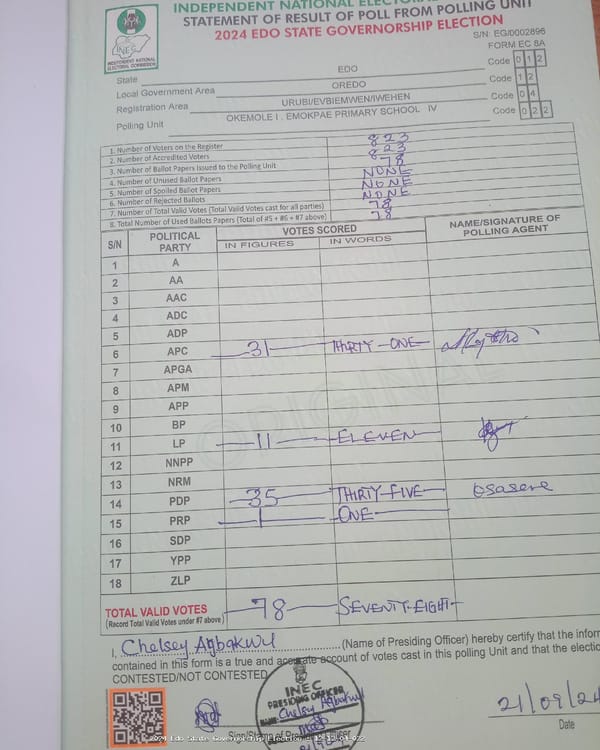 INDEPENDENT NATIONAL ELECTORAL
STATEMENT OF RESULT OF POLL FROM POLLING UNIT
2024 EDO STATE GOVERNORSHIP ELECTION
INEC
INDEPENDENT NATIONAL ELECTORAL COMMISSION
S/N: EG/0002896
FORM EC 8A
State EDO Code 0 1 2
Local Government Area OREDO Code 1 2
Registration Area URUBI/EVBIEMWEN/IWEHEN Code 0 4
Polling Unit OKEMOLE I . EMOKPAE PRIMARY SCHOOL IV Code 0 2 2
1. Number of Voters on the Register 823
2. Number of Accredited Voters
3. Number of Ballot Papers Issued to the Polling Unit 823
4. Number of Unused Ballot Papers
5. Number of Spoiled Ballot Papers NONE
6. Number of Rejected Ballots NONE
7. Number of Total Valid Votes (Total Valid Votes cast for all parties) 78
8. Total Number of Used Ballots Papers (Total of #5 + #6 + #7 above) 78
S/N POLITICAL PARTY VOTES SCORED NAME/SIGNATURE OF POLLING AGENT
IN FIGURES IN WORDS
1 A
2 AA
3 AAC
4 ADC
5 ADP
6 APC 31 THIRTY-ONE
7 APGA
8 APM
9 APP
10 BP
11 LP 11 ELEVEN
12 NNPP
13 NRM
14 PDP 35 THIRTY-FIVE Osasere
15 PRP 1 ONE
16 SDP
17 YPP
18 ZLP
TOTAL VALID VOTES 78 SEVENTY-EIGHT
(Record Total Valid Votes under #7 above)
I, Chelsey Agbakwu (Name of Presiding Officer) hereby certify that the inform
contained in this form is a true and accurate account of votes cast in this polling Unit and that the electio
CONTESTED/NOT CONTESTED
INEC
PRESIDING OFFICER
Chelsey Agbakwu
21/09/24
Date
2024 Edo State Governorship Election